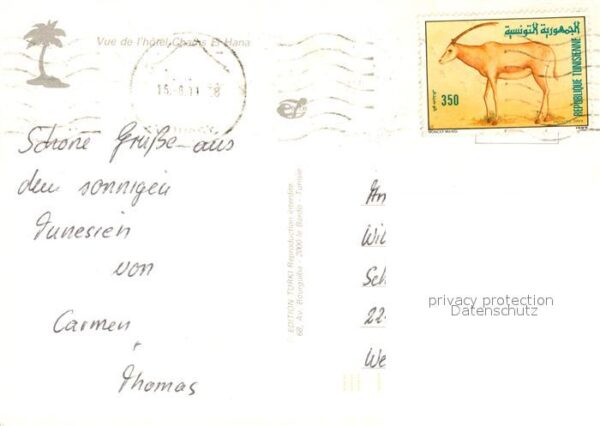 Vue de l'hôtel Chams El Hana
الجمهورية التونسية
REPUBLIQUE TUNISIENNE
350
Schöne Grüße aus
dem sonnigen
Tunesien
von
Carmen
+
Thomas
EDITION TURKI Reproduction interdite
68, Av. Bourguiba - 2000 le Bardo - Tunisie
An
Wil
Sch
22
We
privacy protection
Datenschutz